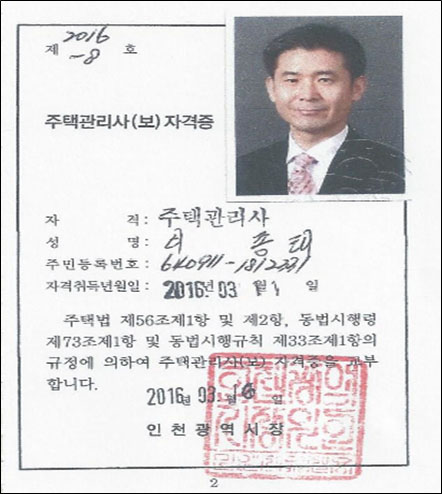 제 2016 -8 호
주택관리사(보) 자격증
자 격: 주택관리사
성 명:
주민등록번호:
자격취득년월일: 2016년 03 일
주택법 제56조제1항 및 제2항, 동법시행령
제73조제1항 및 동법시행규칙 제33조제1항의
규정에 의하여 주택관리사(보) 자격증을 교부
합니다.
2016년 03월 일
인천광역시장
2